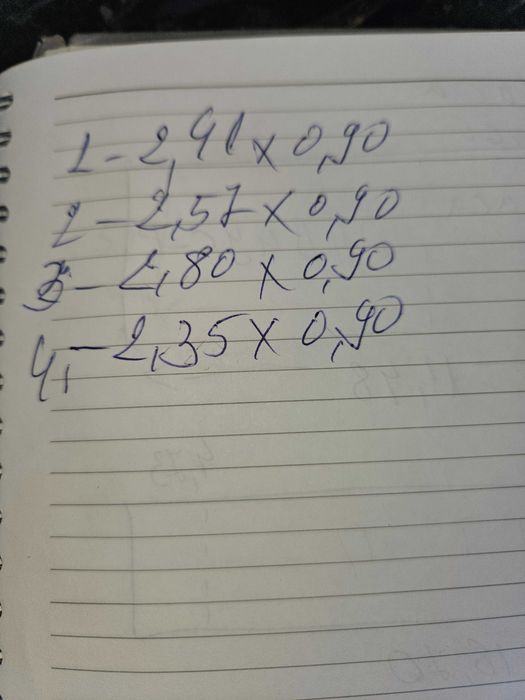 1 - 2,41 x 0,90
2 - 2,57 x 0,90
3 - 2,80 x 0,90
4, - 2,35 x 0,90